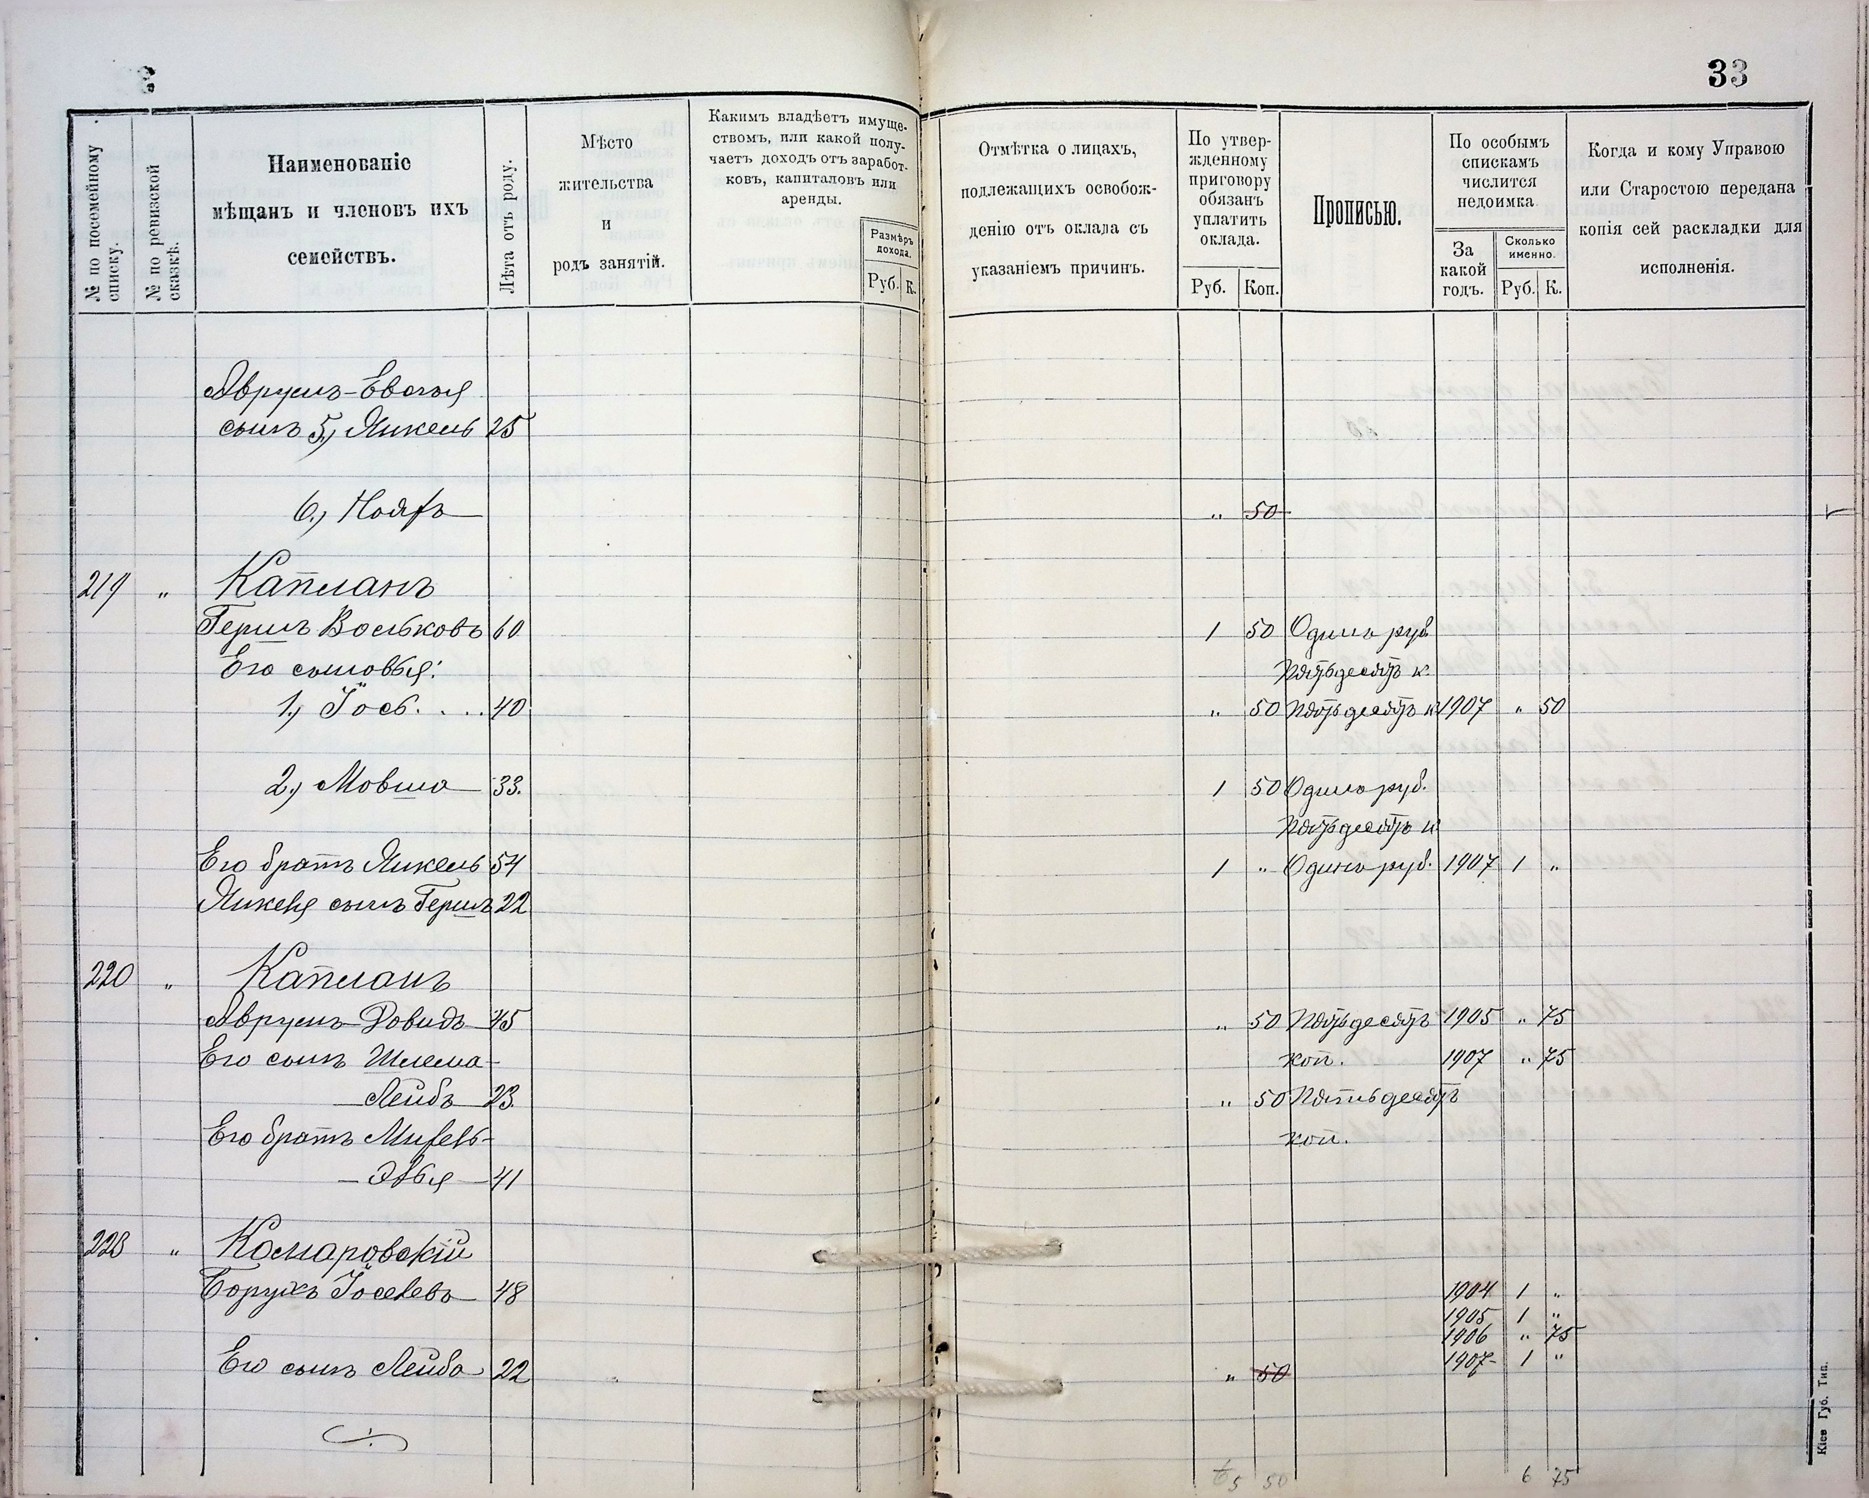 33
№ по посемейному списку.
№ по ревизской сказкѣ.
Наименованіе
мѣщанъ и членовъ ихъ
семействъ.
Лѣта отъ роду.
Мѣсто
жительства
и
родъ занятій.
Какимъ владѣетъ имуще-
ствомъ, или какой полу-
чаетъ доходъ отъ заработ-
ковъ, капиталовъ или
аренды.
Размѣръ
дохода.
Руб. К.
Отмѣтка о лицахъ,
подлежащихъ освобож-
денію отъ оклада съ
указаніемъ причинъ.
По утвер-
жденному
приговору
обязанъ
уплатить
оклада.
Руб. Коп.
Прописью.
По особымъ
спискамъ
числится
недоимка
За
какой
годъ.
Сколько
именно.
Руб. К.
Когда и кому Управою
или Старостою передана
копія сей раскладки для
исполненія.
Аврумъ-Евсѣя
сынъ 5,) Янкель 25
6,) Нояхъ „ 50
219 „ Капланъ
Гершъ Вольковъ 60 1 50 Одинъ руб.
Его сыновья: Пятьдесятъ к.
1,) Іосъ. . . . 40 „ 50 Пятьдесятъ к 1907 „ 50
2,) Мовша 33. 1 50 Одинъ руб.
Пятьдесятъ к
Его братъ Янкель 54 1 „ Одинъ руб. 1907 1 „
Янкеля сынъ Гершъ 22
220 „ Капланъ
Аврумъ-Довидъ 45 „ 50 Пятьдесятъ 1905 „ 75
Его сынъ Шлема- коп. 1907 „ 75
Лейбъ 23 „ 50 Пятьдесятъ
Его братъ Михель- коп.
41
223 „ Комаровскій
Борухъ Іоселевъ 48 1904 1 „
1905 1 „
1906 „ 75
Его сынъ Лейба 22 „ 50 1907 1 „
5 50 6 75
Кіев Губ. Тип.